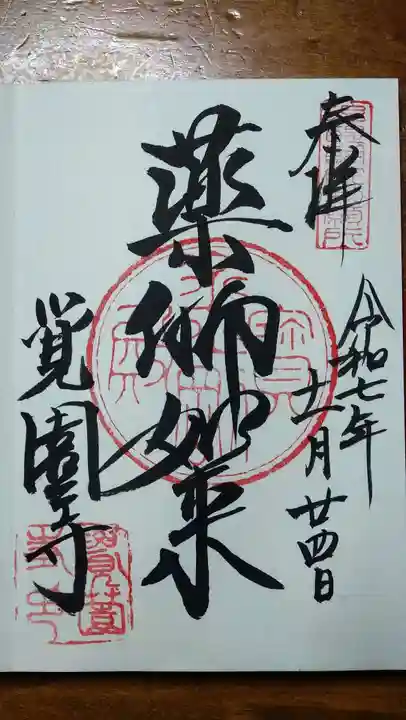 奉拝
令和七年
十一月廿四日
薬師如来
覚園寺